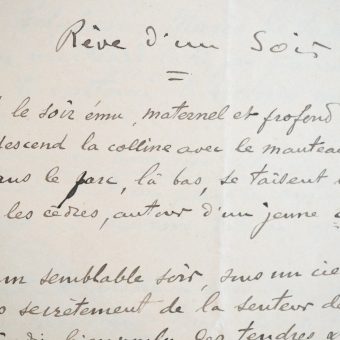 Rêve d'un Soir
le soir ému, maternel et profond
descend la colline avec le manteau
le parc, là bas, se taisent
les cèdres, autour d'un jeune
semblable soir, sous un cie
secrètement de la senteur de
des tendres